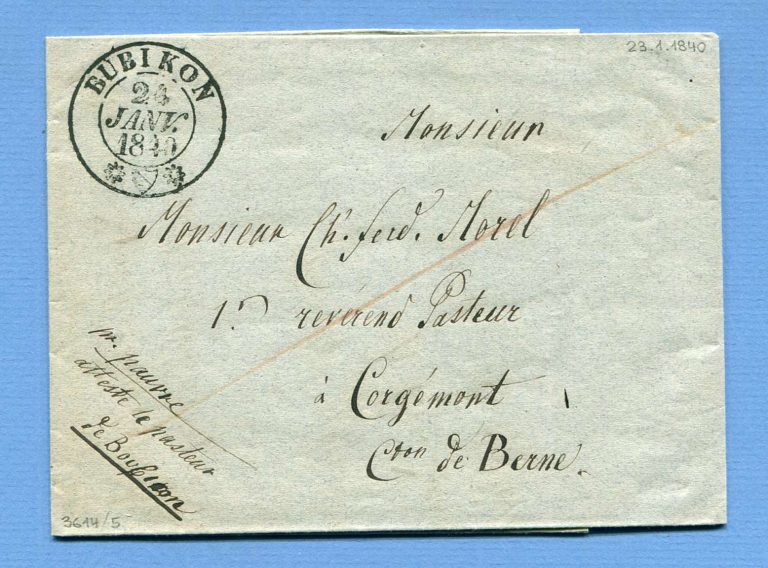 BUBIKON
24
JANV.
1840
23.1.1840
Monsieur
Monsieur Ch. ferd. Morel
1r révérend Pasteur
à Corgémont
Cton de Berne.
pr. pauvre
atteste le pasteur
de
3614/5